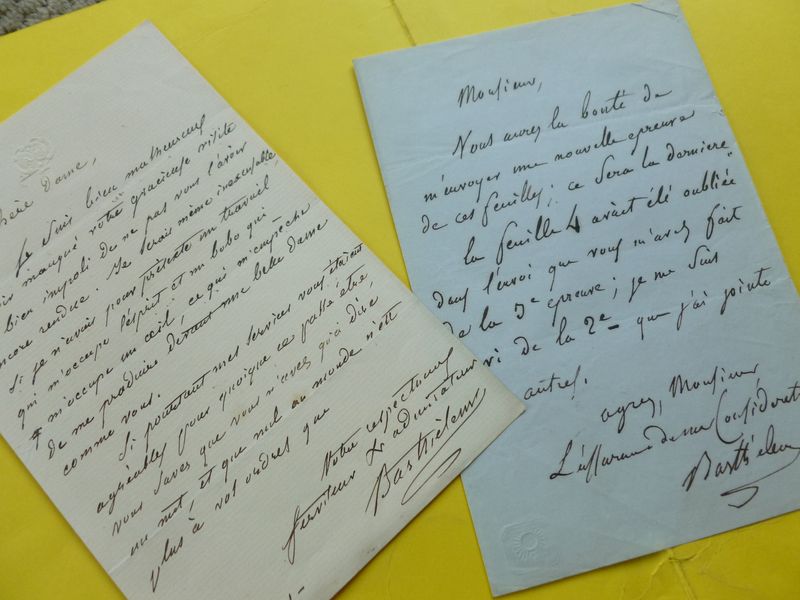 hère Dame,
Je suis bien malheureux
oir manqué votre gracieuse visite
bien impoli de ne pas vous l'avoir
ncore rendue. Je serais même inexcusable,
si je n'avais pour prétexte un travail
qui m'occupe l'esprit et un bobo qui
m'occupe un œil, ce qui m'empêche
de me produire devant une belle dame
comme vous.
Si pourtant mes services vous étaient
agréables pour quoique ce putse être
vous savez que vous n'avez qu'à dire
un mot, et que nul au monde n'est
plus à vos ordres que
Votre respectueux
serviteur & admirateur
Barthélemy
Monsieur,
Vous aurez la bonté de
m'envoyer une nouvelle epreuve
de ces feuilles; ce sera la derniere
la feuille 4 avait été oubliée
dans l'envoi que vous m'avez fait
de la 3e epreuve; je me suis
vi de la 2e que j'ai jointe
autres.
agréez, Monsieur
L'assurance de ma Considerat
Barthélem